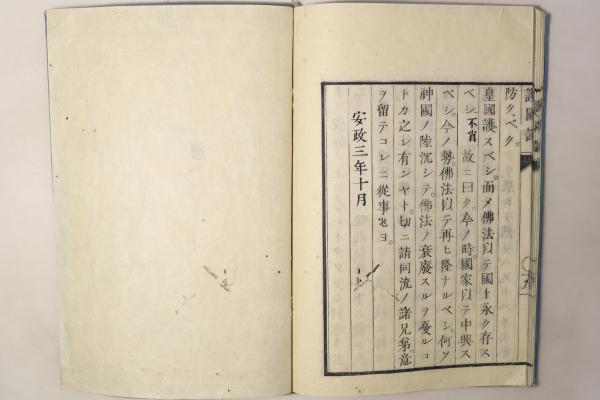 防クベク
皇國護スベシ。而メ佛法以テ國ト永ク存ス
ベシ。不肖故ニ曰ク。今ノ時國家以テ中興ス
ベシ。今ノ勢佛法以テ再ヒ隆ナルベシ。何ソ
神國ノ陸沉シテ。佛法ノ衰廢スルヲ憂ルコ
トカ之レ有ンヤト。切ニ請同流ノ諸兄弟。意
ヲ留テコレニ從事セヨ。
安政三年十月